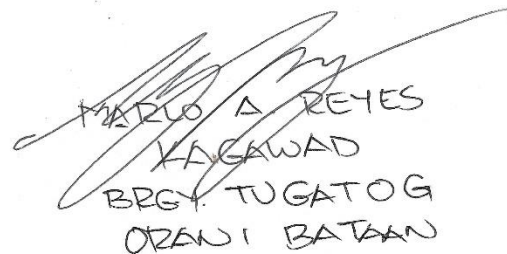 MARLO A. REYES
KAGAWAD
BRGY. TUGATOG
ORANI BATAAN